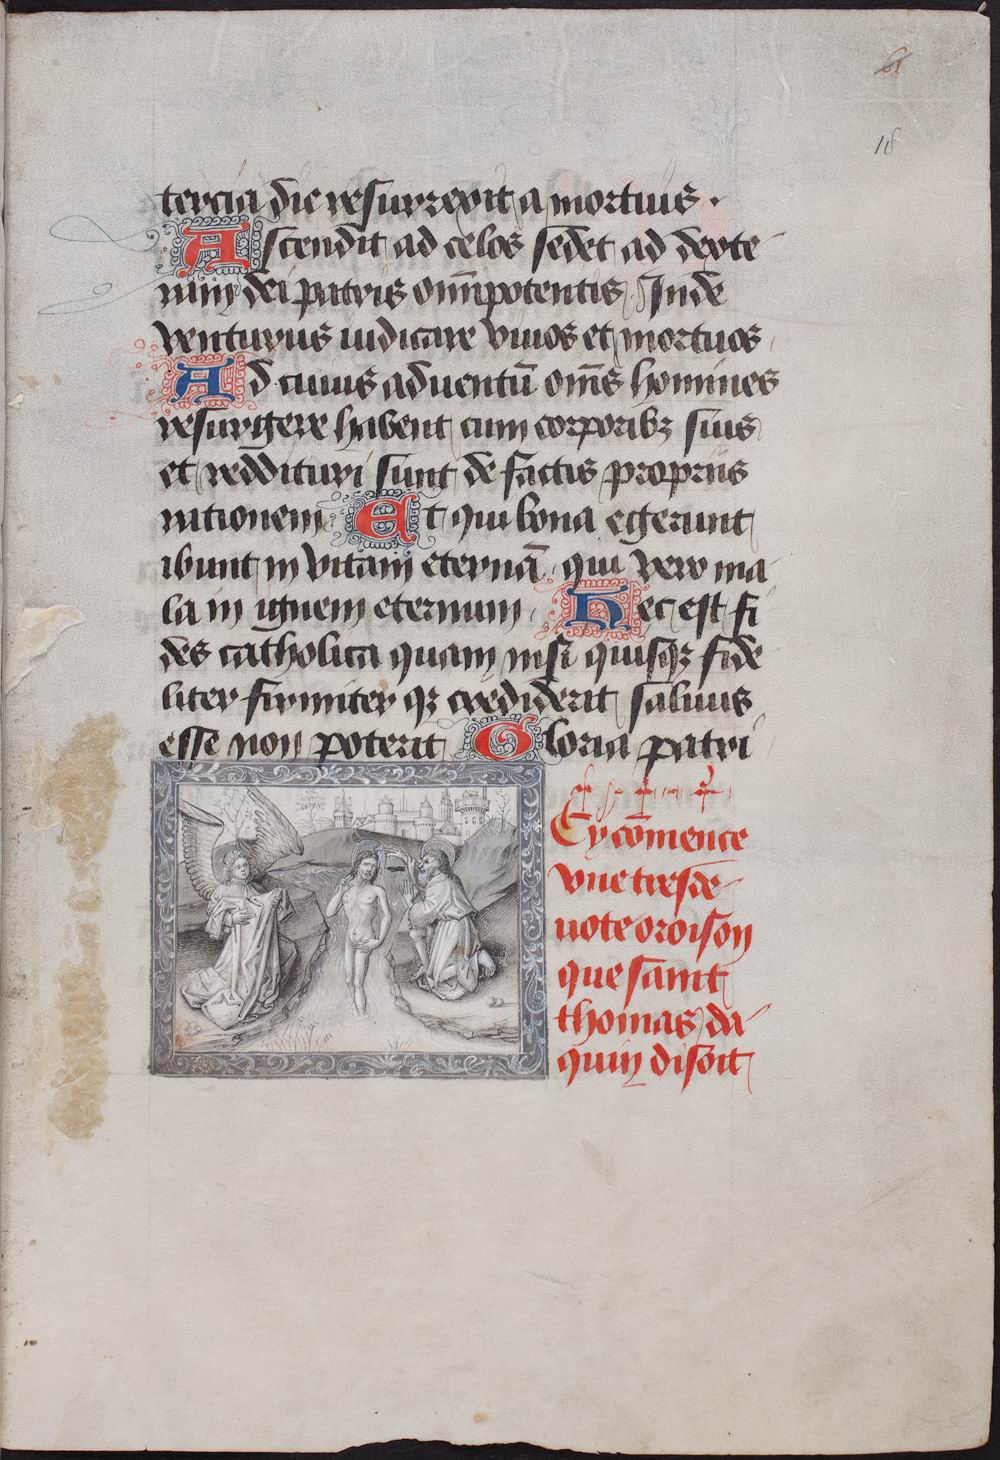 61
18
tercia die resurrexit a mortuis .
Ascendit ad celos sedet ad dexte
ram dei patris om̄ipotentis Inde
venturus iudicare viuos et mortuos
Ad cuius aduentū om̄s homines
resurgere habent cum corporibꝫ suis
et reddituri sunt de factis propriis
rationem Et qui bona egerunt
ibunt in vitam eternā qui vero ma
la in ignem eternum . Hec est fi
des catholica quam nisi quisqꝫ fide
liter firmiter qꝫ crediderit saluus
esse non poterit Gloria patri
Cy cōmence
vne tres de
uote oroison
que saint
thomas da
quin disoit